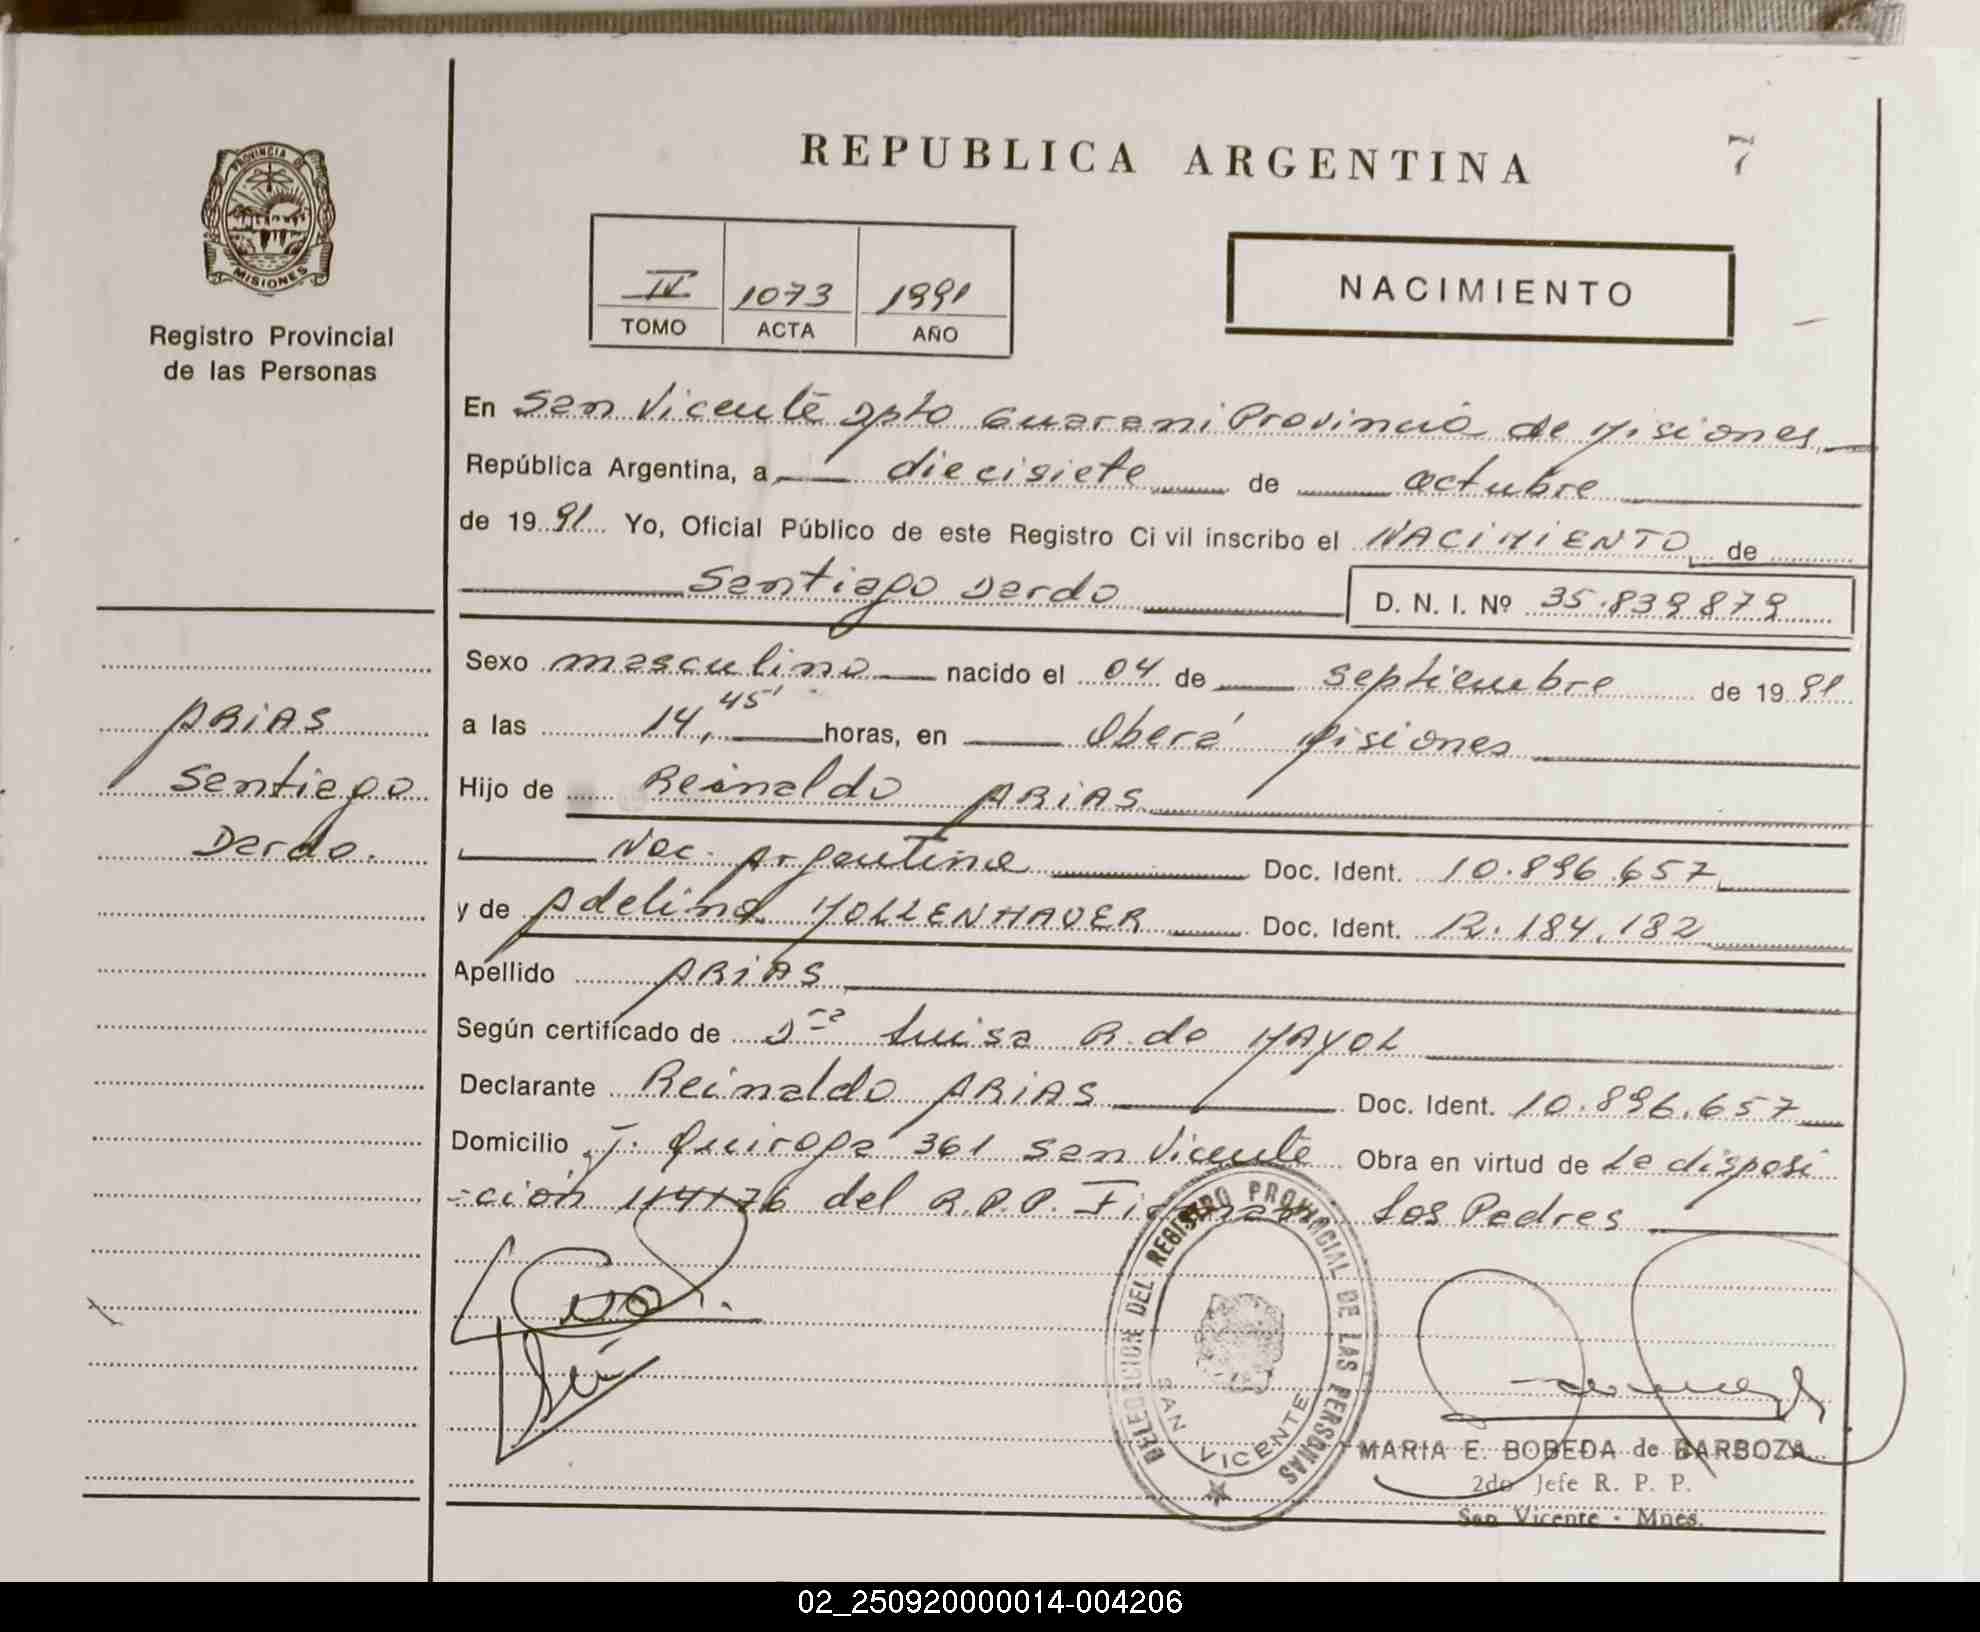 REPUBLICA ARGENTINA
7
PROVINCIA DE
MISIONES
Registro Provincial
de las Personas
IV 1073 1991
TOMO ACTA AÑO
NACIMIENTO
En San Vicente Dpto Guarani Provincia de Misiones
República Argentina, a diecisiete de octubre
de 1991 Yo, Oficial Público de este Registro Ci vil inscribo el NACIMIENTO de
Santiago Dardo D. N. I. Nº 35.839879
Sexo masculino nacido el 04 de septiembre de 1991
a las 14,45' horas, en Oberá Misiones
Hijo de Reinaldo ARIAS
Nac. Argentina Doc. Ident. 10.896.657
y de Adelina MOLLENHAUER Doc. Ident. R. 184.182
Apellido ARIAS
Según certificado de Dra Luisa R. de MAYOL
Declarante Reinaldo ARIAS Doc. Ident. 10.896.657
Domicilio J. Quiroga 361 San Vicente Obra en virtud de La disposi
=ción 114176 del R.P.P. Firman Los Padres
ARIAS
Santiago
Dardo.
DELEGACION DEL REGISTRO PROVINCIAL DE LAS PERSONAS
SAN VICENTE
MARIA E. BOBEDA de BARBOZA
2do Jefe R. P. P.
San Vicente - Mnes.
02_250920000014-004206